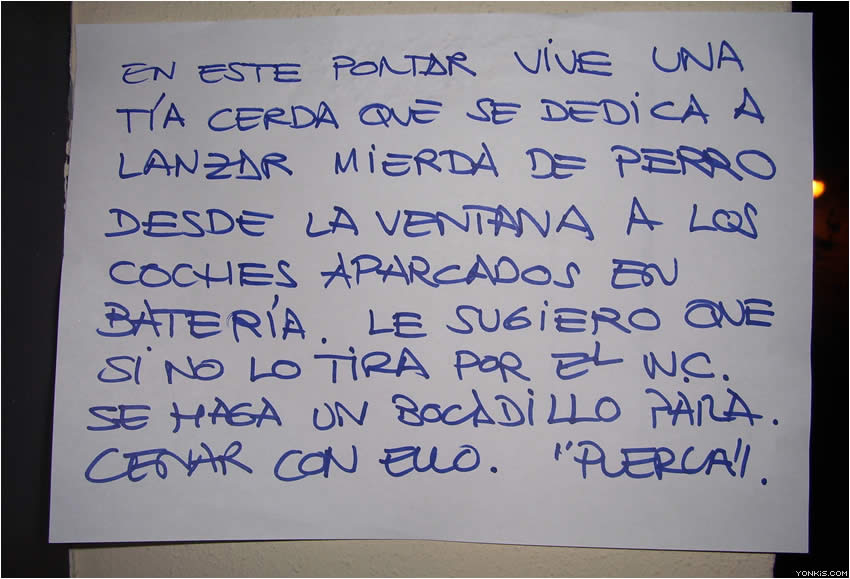 EN ESTE PORTAR VIVE UNA
TÍA CERDA QUE SE DEDICA A
LANZAR MIERDA DE PERRO
DESDE LA VENTANA A LOS
COCHES APARCADOS EN
BATERÍA. LE SUGIERO QUE
SI NO LO TIRA POR EL W.C.
SE HAGA UN BOCADILLO PARA.
CENAR CON ELLO. "PUERCA".
YONKIS.COM